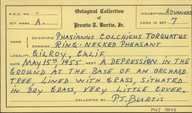 Oological Collection
of
A.
Fronte T. Burtis, Jr.
SET OF 7
PHASIANUS COLCHICUS TORQUATUS
RING-NECKED PHEASANT
GILROY, CALIF
DATE MAY 15TH, 1955 NEST A DEPRESSION IN THE
GROUND AT THE BASE OF AN ORCHARD
TREE, LINED WITH GRASS, SITUATED
IN DRY GRASS, VERY LITTLE COVER.
P.T. BURTIS